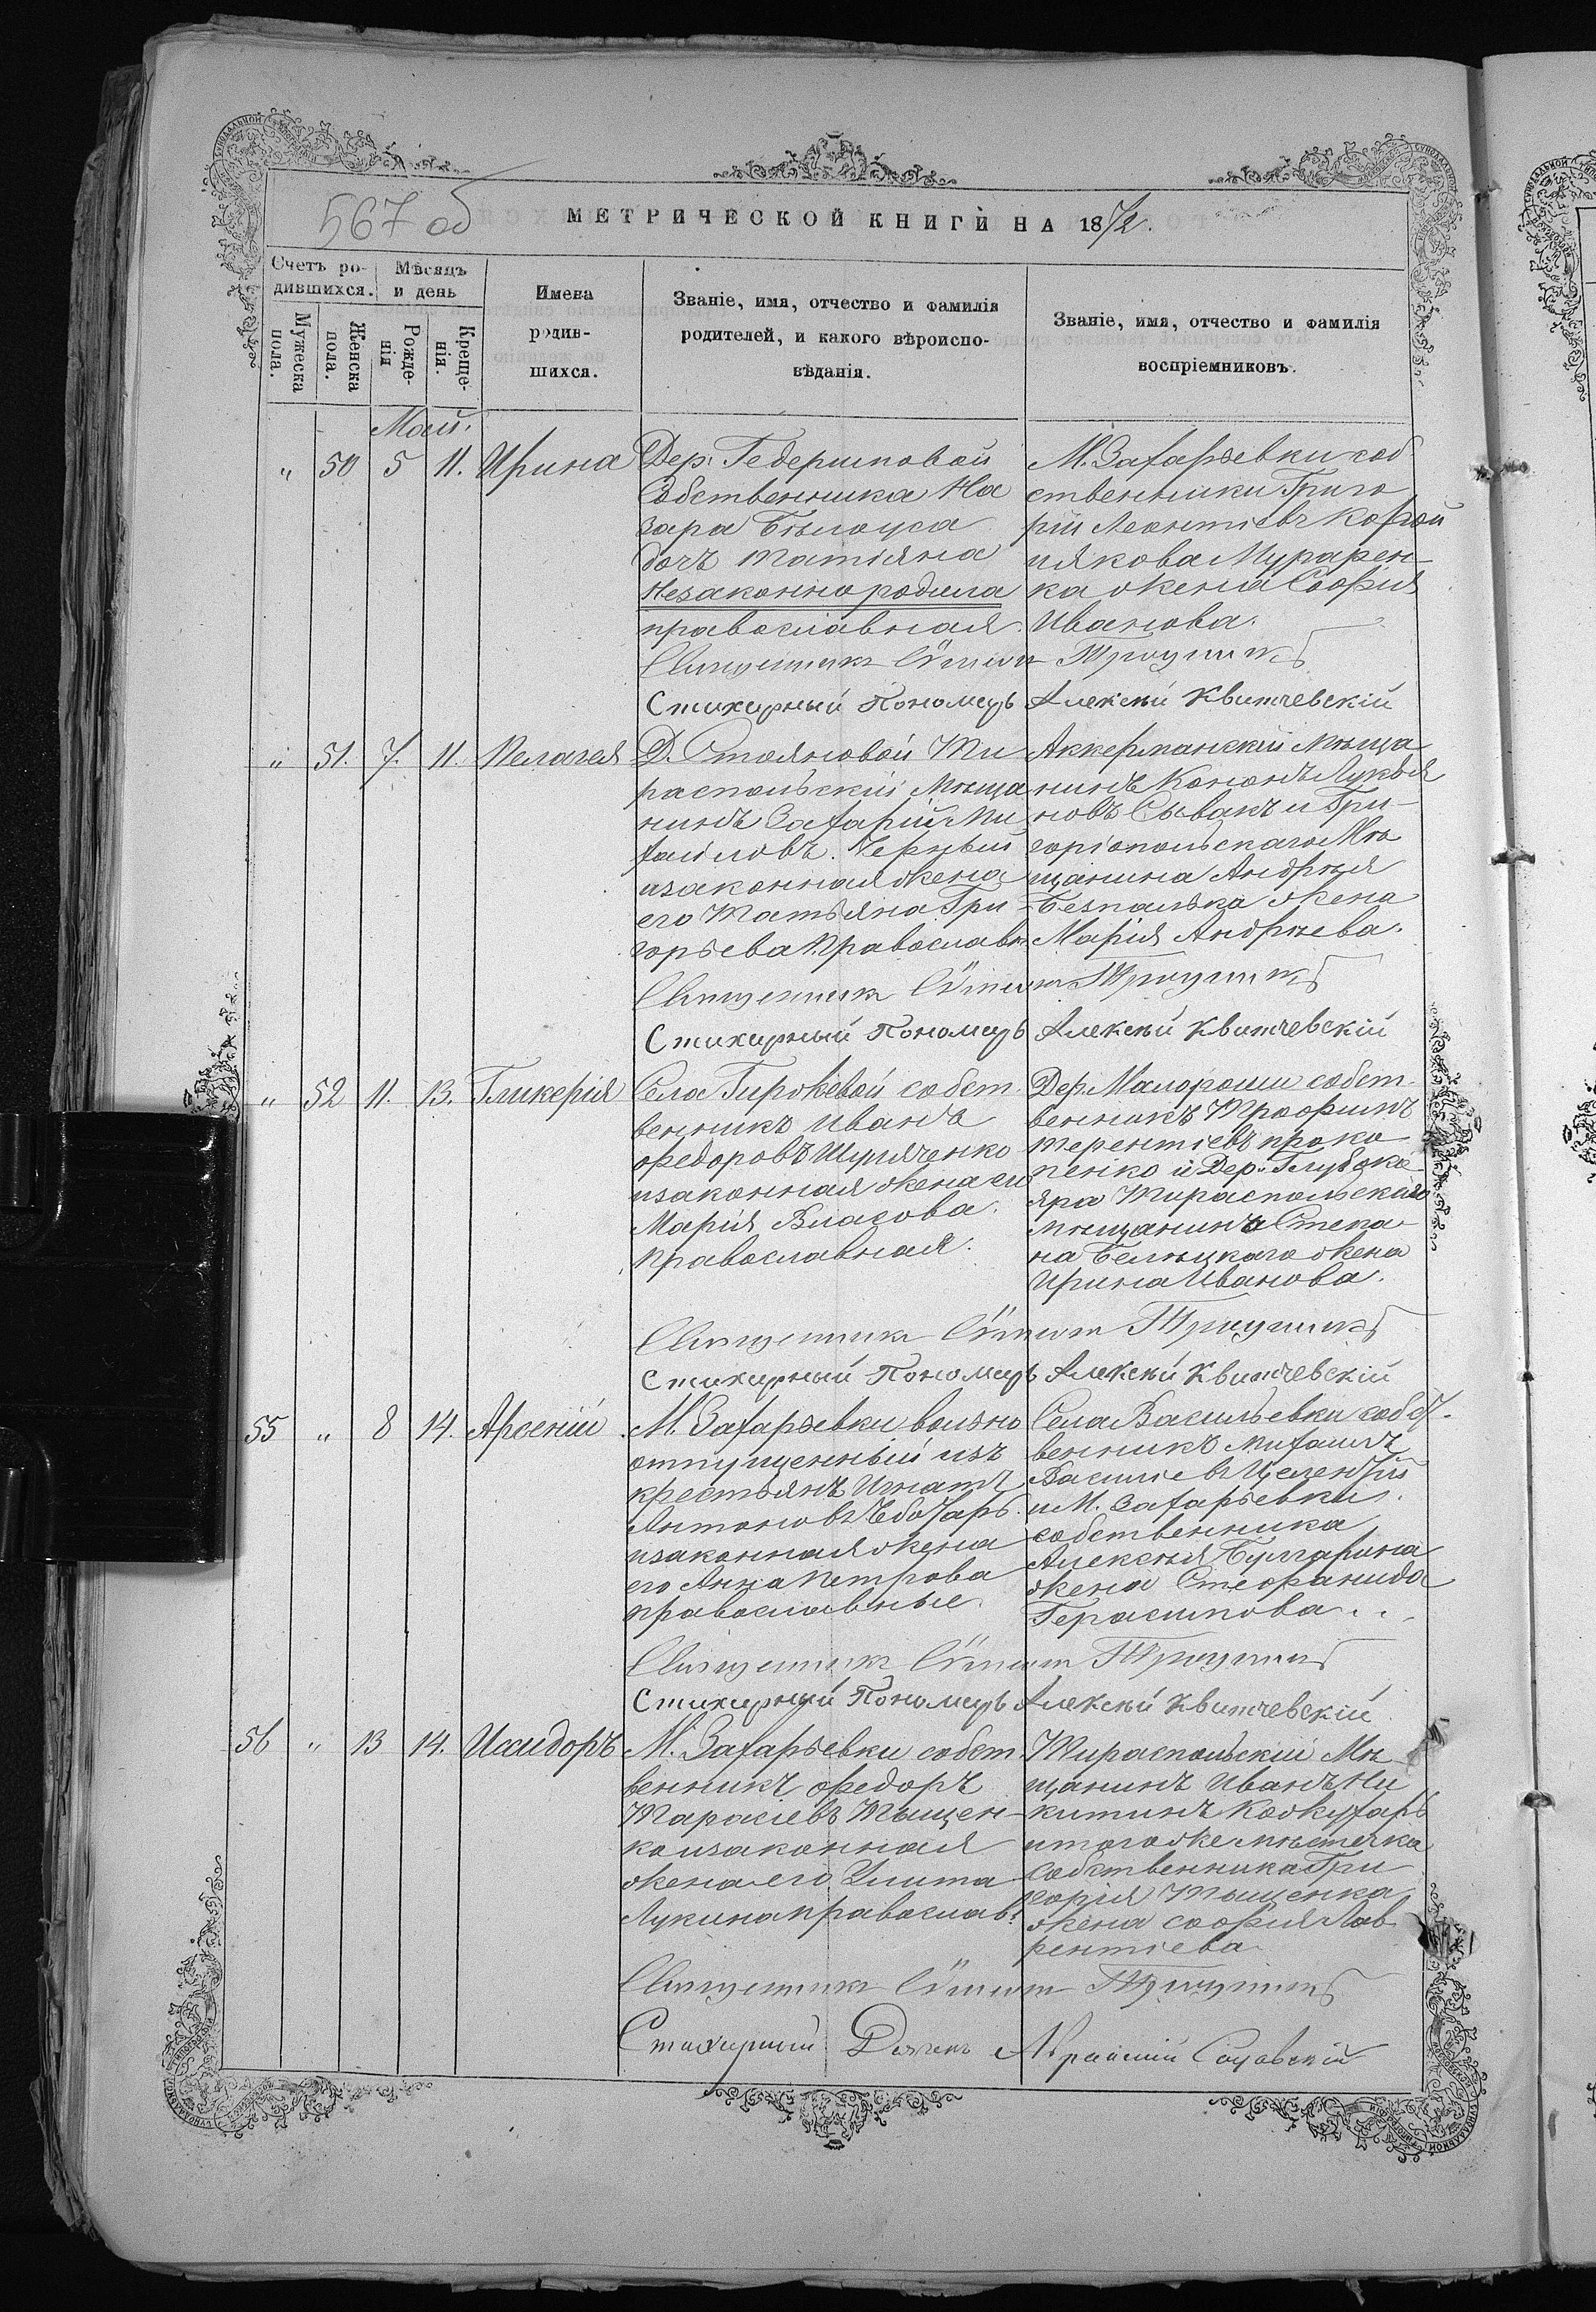 567 об
МЕТРИЧЕСКОЙ КНИГИ НА 1872.
Счетъ ро-
дившихся.
Мѣсяцъ
и день
Мужеска
пола.
Женска
пола.
Рожде-
нія
Креще-
нія.
Имена
родив-
шихся.
Званіе, имя, отчество и фамилія
родителей, и какого вѣроиспо-
вѣданія.
Званіе, имя, отчество и фамилія
воспріемниковъ.
Май.
" 50 5 11. Ирина
Дер. Гедеримовой
Собственника На
зара Бѣлоуса
дочъ Татіяна
Незаконно родила
православная.
М. Захарьевки соб
ственники Григо
рій Леонтіевъ
и Якова Мурарен-
ка жена Софія
Иванова.
Священникъ
Стихарный Пономарь Алексѣй Квитчевскій
" 51. 7. 11. Пелагея
Д. Стояновой Ти
распольскій Мѣща
нинъ Захарій Ми
хайловъ Черный
и законная жена
его Татьяна Гри-
горьева Православн
Аккерманскій Мѣща
нинъ Кононъ Лукья
новъ Сывакъ и Гри-
горіопольскаго Мѣ
щанина Андрѣя
Безпалька жена
Марія Андрѣева.
Священникъ
Стихарный Пономарь Алексѣй Квитчевскій
" 52 11. 13. Гликерія
Села Гиржевой собст.
венникъ Иванъ
Федоровъ
и законная жена его
Марія Власова.
Православная.
Дер. Малороши собст.
венникъ Трофимъ
Терентіевъ Проко
пенко и Дер. Глубоко
яра Тираспольскаго
мѣщанина Степа-
на Белецкаго жена
Ирина Иванова.
Священникъ
Стихарный Пономарь Алексѣй Квитчевскій
55 " 8 14. Арсеній
М. Захарьевки вольно
отпущенный изъ
крестьянъ Игнатъ
Антоновъ Чеботарь
и законная жена
его Анна Петрова
православные
Села Васильевки собст.
венникъ Михаилъ
Василіевъ
и М. Захарьевки
собственника
Алексѣя Булгарина
жена Стефанида
Герасимова.
Священникъ
Стихарный Пономарь Алексѣй Квитчевскій
56 " 13 14. Исидоръ
М. Захарьевки собст.
венникъ Федоръ
Тарасіевъ Тыщен-
ко и законная
жена его Улита
Лукина православ.
Тираспольскій Мѣ
щанинъ Иванъ Ни
китинъ Кожухарь
и того же мѣстечка
собственника Гри
горія Тыщенка
жена Софія Лав
рентіева
Священникъ
Стихарный Дьячекъ